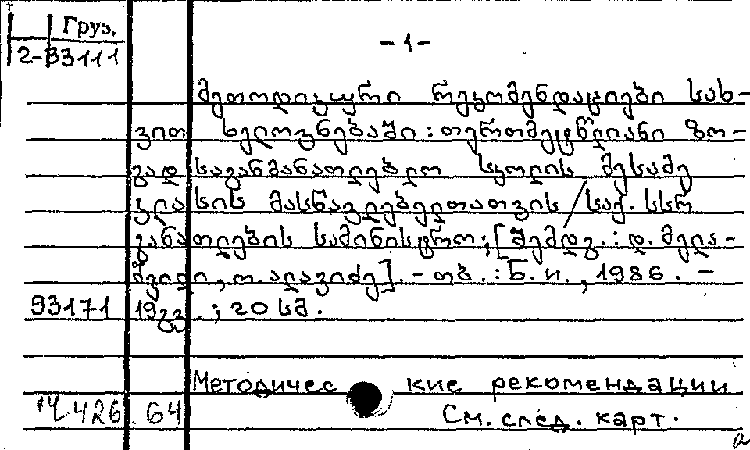 Груз.
2-93111
-1-
მეთოდიკური რეკომენდაციები სახ-
ვით ხელოვნებაში: თერთმეტწლიანი ზო-
გად საგანმანათლებლო სკოლის მესამე
კლასის მასწავლებელთათვის / საქ. სსრ
განათლების სამინისტრო; [შემდგ.: დ. მელა-
შვილი, ო. ალავიძე]. - თბ. : Б. и., 1986. -
93171 19 გვ. ; 20 სმ.
Методичес кие рекомендации
14.426 64 См. след. карт.